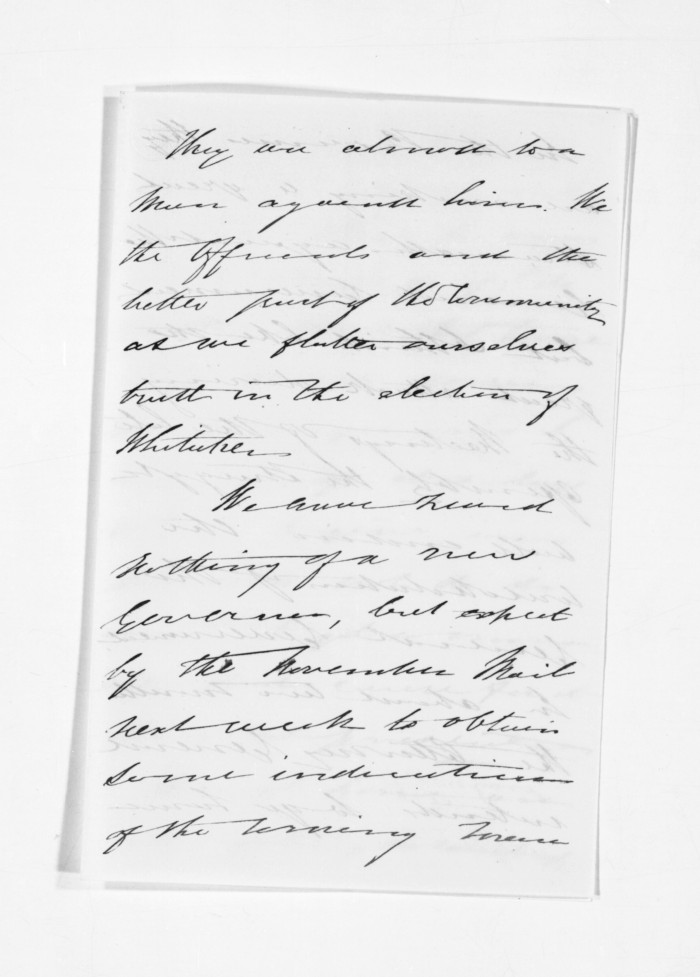 They are almost to a
man against him. We
the Officials and the
better part of the Community
as we flatter ourselves
trust in the election of
Whitaker
We have heard
nothing of a new
Governor, but expect
by the November Mail
next week to obtain
some indication
of the coming